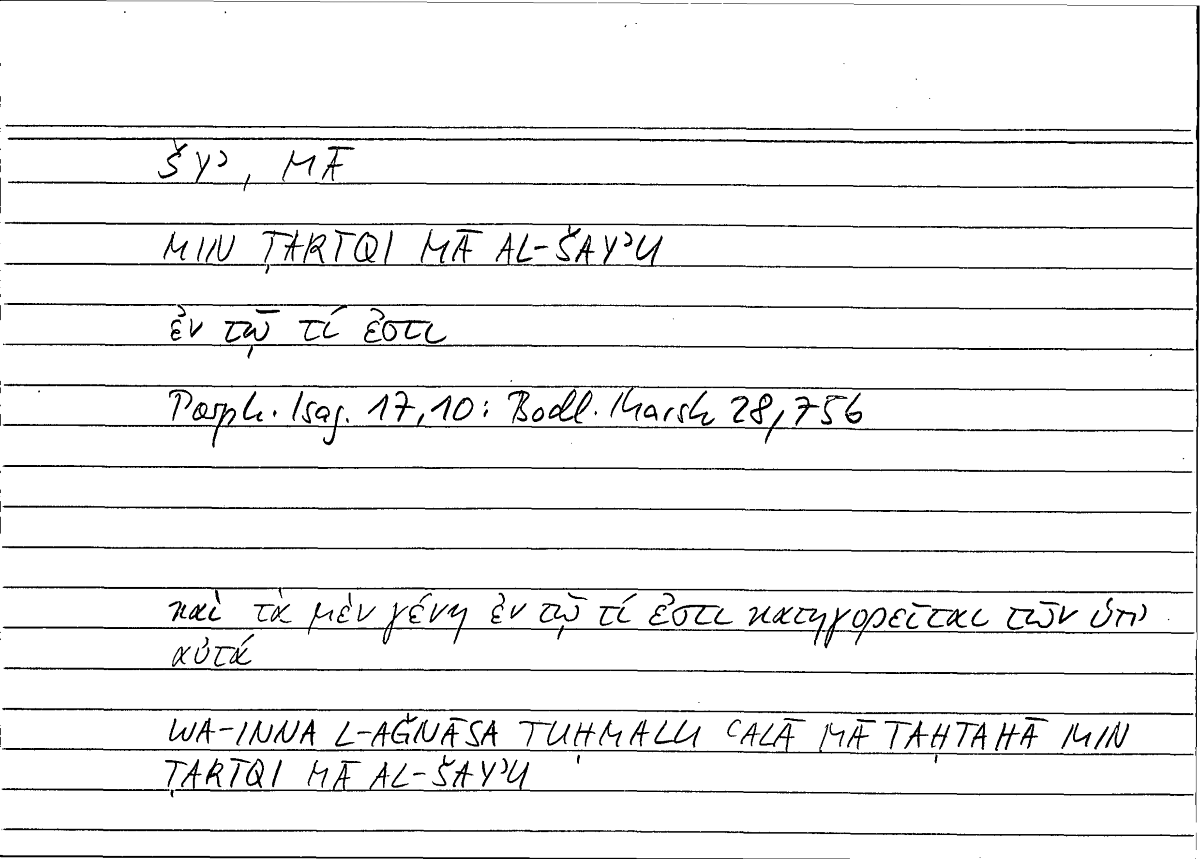 ŠYʾ, MĀ
MIN ṬARĪQI MĀ AL-ŠAYʾU
ἐν τῷ τί ἐστι
Porph. Isag. 17,10: Bodl. Marsh 28,756
καὶ τὰ μὲν γένη ἐν τῷ τί ἐστι κατηγορεῖται τῶν ὑπ'
αὐτά
WA-INNA L-AǦNĀSA TUḤMALU ʿALĀ MĀ TAḤTAHĀ MIN
ṬARĪQI MĀ AL-ŠAYʾU